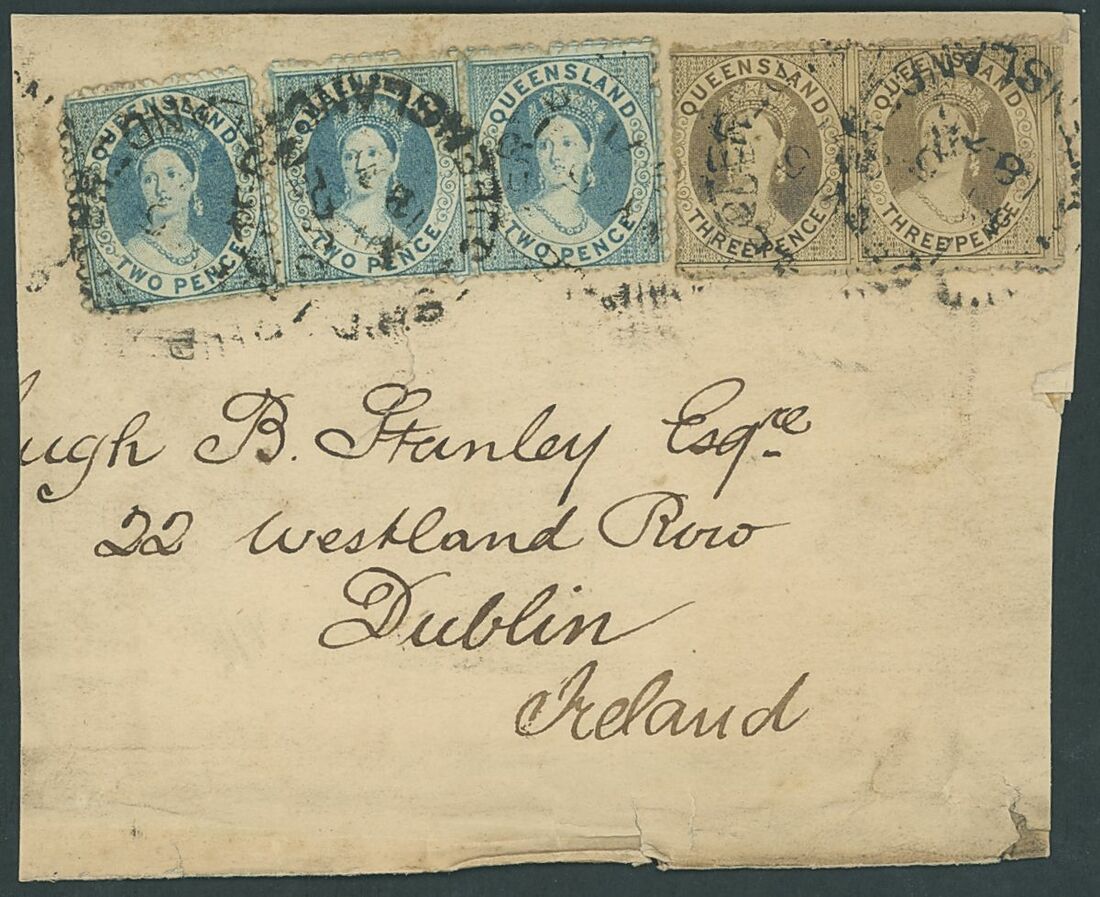 QUEENSLAND QUEENSLAND QUEENSLAND QUEENSLAND QUEENSLAND
TWO PENCE TWO PENCE TWO PENCE THREE PENCE THREE PENCE
ugh B. Stanley Esqre
22 Westland Row
Dublin
Ireland